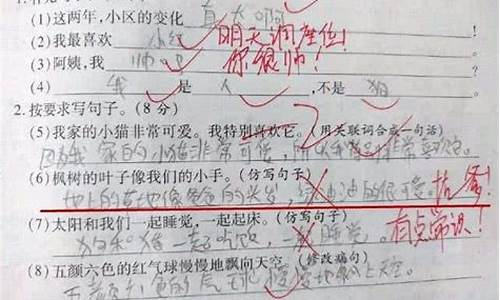 (1)这两年,小区的变化 真大啊
(2)我最喜欢 小红 明天调座位!
(3)阿姨,我 帅吧 你很帅!
(4) 我 是 人 ,不是 狗
2.按要求写句子。(8 分)
(5)我家的小猫非常可爱。我特别喜欢它。(用关联词合成一句话)
因为我家的小猫非常可爱,所以我 非常喜欢它。
(6)枫树的叶子像我们的小手。(仿写句子)
地上的草地像爸爸的头发, 绿油油的很可爱。 找爹!
(7)太阳和我们一起睡觉,一起起床。(仿写句子)
狗和猪一起吃饭,一起睡觉。 有点常识!
(8)五颜六色的红气球慢慢地飘向天空。(修改病句)
五颜六色的气球慢慢地飘上天空。